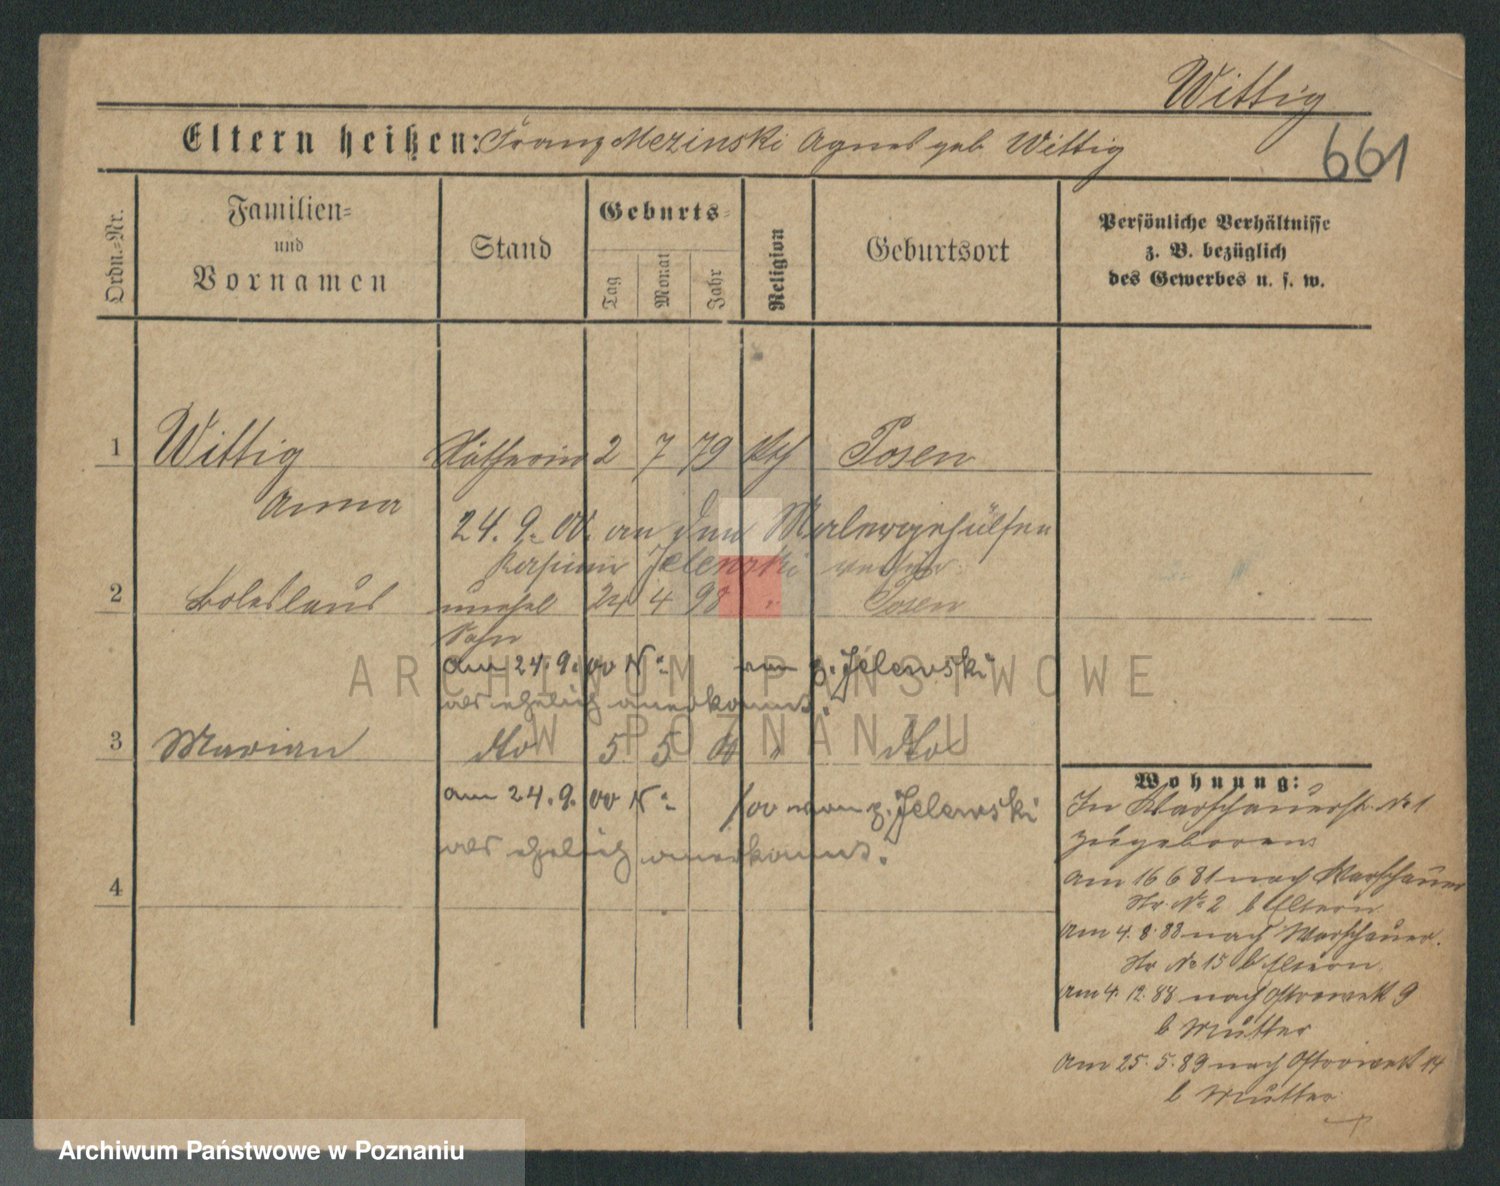 Wittig
Eltern heißen: Franz Mezinski Agnes geb Wittig
661
Ordn.=Nr.
Familien= und Vornamen
Stand
Geburts=
Tag
Monat
Jahr
Religion
Geburtsort
Persönliche Verhältnisse
z. B. bezüglich
des Gewerbes u. s. w.
1 Wittig Nätherin 2 7 79 kth Posen
Anna
24. 9. 00. an den Malergehülfen
Jelewski
2 Boleslaus unehel 24 4 98 " Posen
Sohn
am 24. 9. 00 v. z. Jelewski
als ehelich anerkannt.
3 Marian dto 5 5 " dto
am 24. 9. 00 von z. Jelewski
als ehelich anerkannt.
4
Wohnung:
In Warschauerstr. No 1
zugeboren
am 16 6 81 nach Warschauer
Str. No 2 b Eltern
am 4. 8. 83 nach Warschauer.
Str No 15 b Eltern
am 4. 12. 88 nach Ostrowek 9
b Mutter
am 25. 5. 89 nach Ostrowek 14
b Mutter
ARCHIWUM PAŃSTWOWE
W POZNANIU
Archiwum Państwowe w Poznaniu